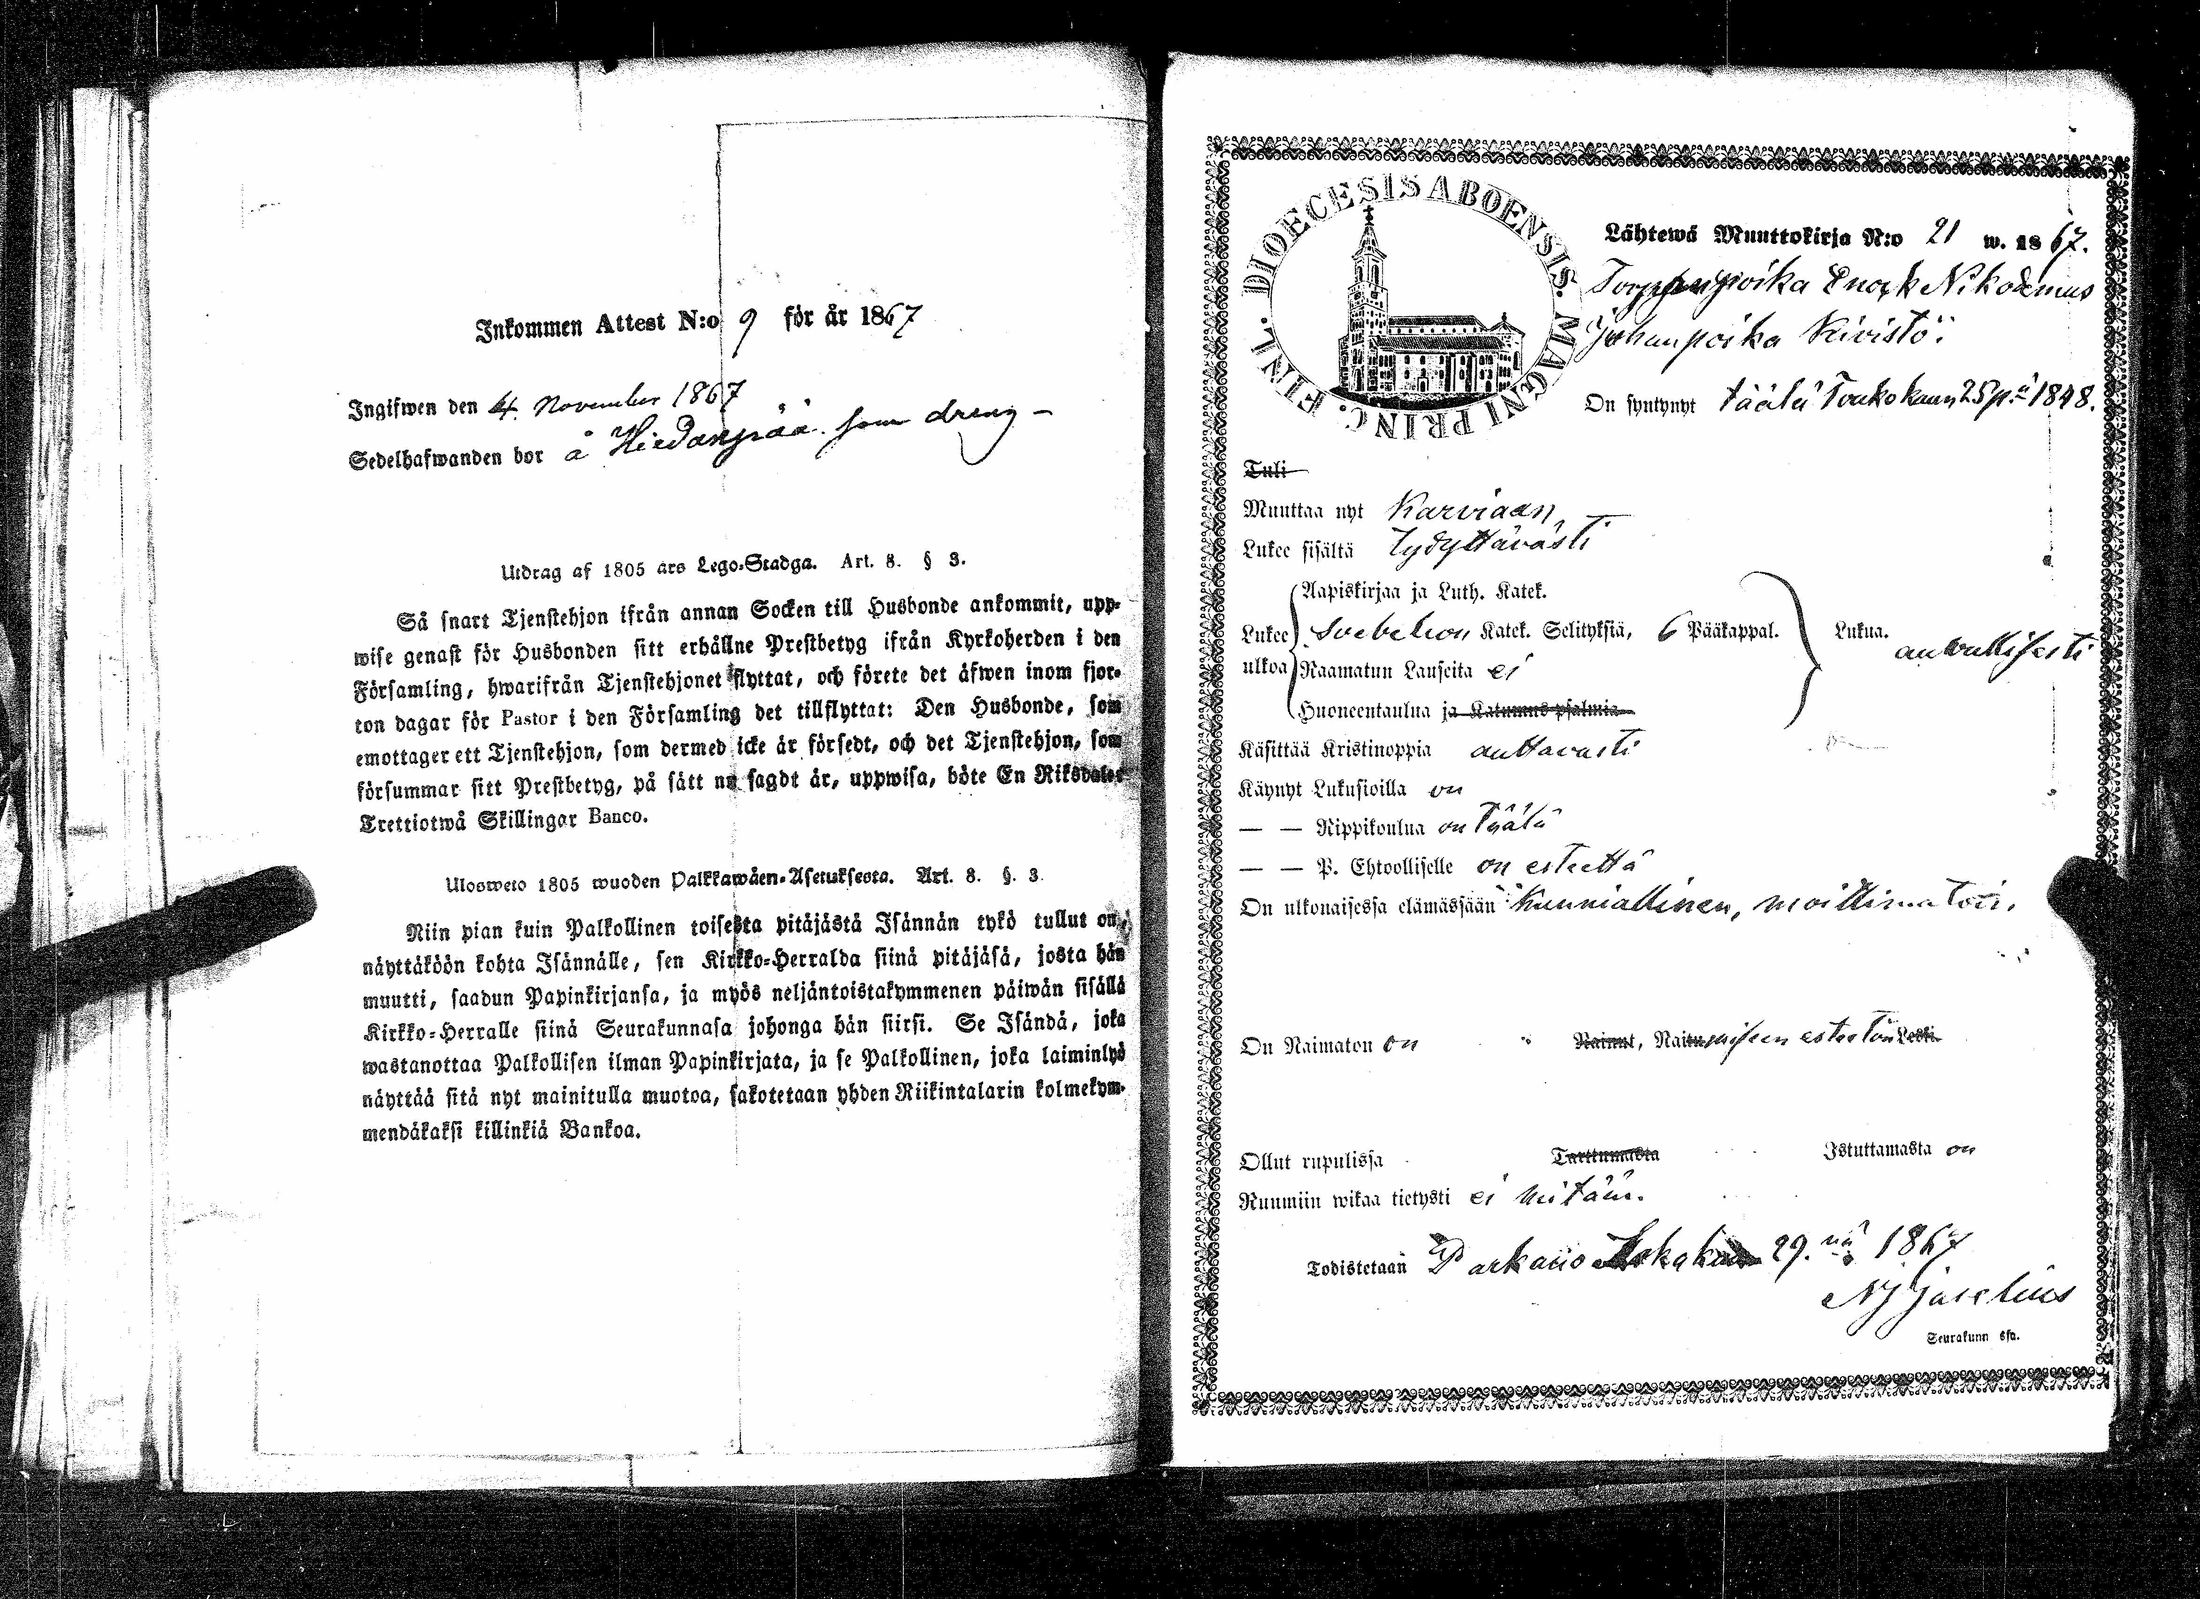 Inkommen Attest N:o 9 för år 1867
Ingifwen den 4 November 1867
Sedelhafwanden bor å Hiedanpää som dreng –
Utdrag af 1805 ars Lego-Stadga. Art. 8. § 3.
Så snart Tjenstehjon ifrån annan Socken till Husbonde ankommit, upp-
wise genast för Husbonden sitt erhållne Prestbetyg ifrån Kyrkoherden i den
Församling, hwarifrån Tjenstehjonet flyttat, och förete det äfwen inom fjor-
ton dagar för Pastor i den Församling det tillflyttat: Den Husbonde, som
emottager ett Tjenstehjon, som dermed icke är försedt, och det Tjenstehjon, som
försummar sitt Prestbetyg, på sätt nu sagdt är, uppwisa, böte En Riksdaler
Trettiotwå Skillingar Banco.
Ulosweto 1805 wuoden Palkkawäen-Asetuksesta. Art. 8. §. 3.
Niin pian kuin Palkollinen toisesta pitäjästä Isännän tykö tullut on,
näyttäköön kohta Isännälle, sen Kirkko-Herralda siinä pitäjäsä, josta hän
muutti, saadun Papinkirjansa, ja myös neljäntoistakymmenen päiwän sisällä
Kirkko-Herralle siinä Seurakunnasa johonga hän siirsi. Se Isändä, joka
wastanottaa Palkollisen ilman Papinkirjata, ja se Palkollinen, joka laiminlyö
näyttää sitä nyt mainitulla muotoa, sakotetaan yhden Riikintalarin kolmekym-
mendäkaksi killinkiä Bankoa.
DIOECESIS ABOENSIS. MAGNI PRINC. FINL.
Lähtewä Muuttokirja N:o 21 w. 1867.
Torpanpoika Enok Nikodemus
Johanpoika Kivistö.
On syntynyt täälä Toukokuun 25 p:nä 1848.
Tuli
Muuttaa nyt Karviaan
Lukee sisältä tydyttävästi
Aapiskirjaa ja Luth. Katek.
Lukee ulkoa Svebelion Katek. Selityksiä, 6 Pääkappal. Lukua. auttavallisesti
Raamatun Lauseita ei
Huoneentaulua ja Katumus psalmia
Käsittää Kristinoppia auttavasti
Käynyt Lukusioilla on
— — Rippikoulua on täälä
— — P. Ehtoolliselle on esteettä
On ulkonaisessa elämässään kunniallinen, moittimatoin.
On Naimaton on Nainut, Naitumiseen esteetöin Leski
Ollut rupulissa Tarttumasta Istuttamasta on
Ruumiin wikaa tietysti ei mitään.
Todistetaan Parkano Lokakuun 29. nä 1867
Seurakunn ssa.